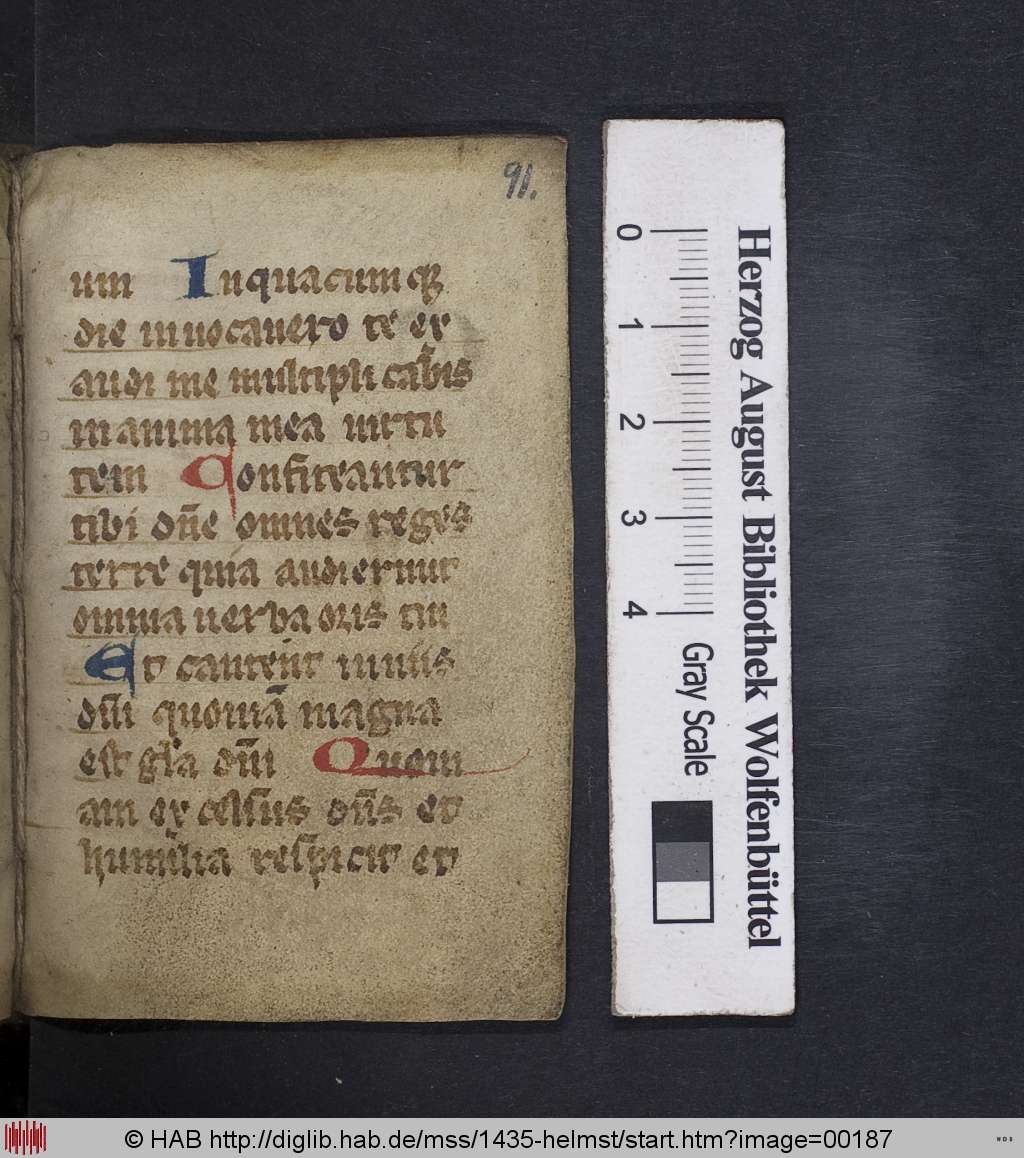 91.
um Inquacumqꝫ
die inuocauero te ex
audi me multipli cab̾is
in anima mea uirtu
tem Confiteantur
tibi dn̄e omnes reges
terre quia audierunt
omnia uerba oris tui
Et cantent in uiis
dn̄i quoniā magna
est gl̄a dn̄i Quoni
am excelsus dn̄s et
humilia respicit et
Herzog August Bibliothek Wolfenbüttel
0 1 2 3 4
Gray Scale
© HAB http://diglib.hab.de/mss/1435-helmst/start.htm?image=00187